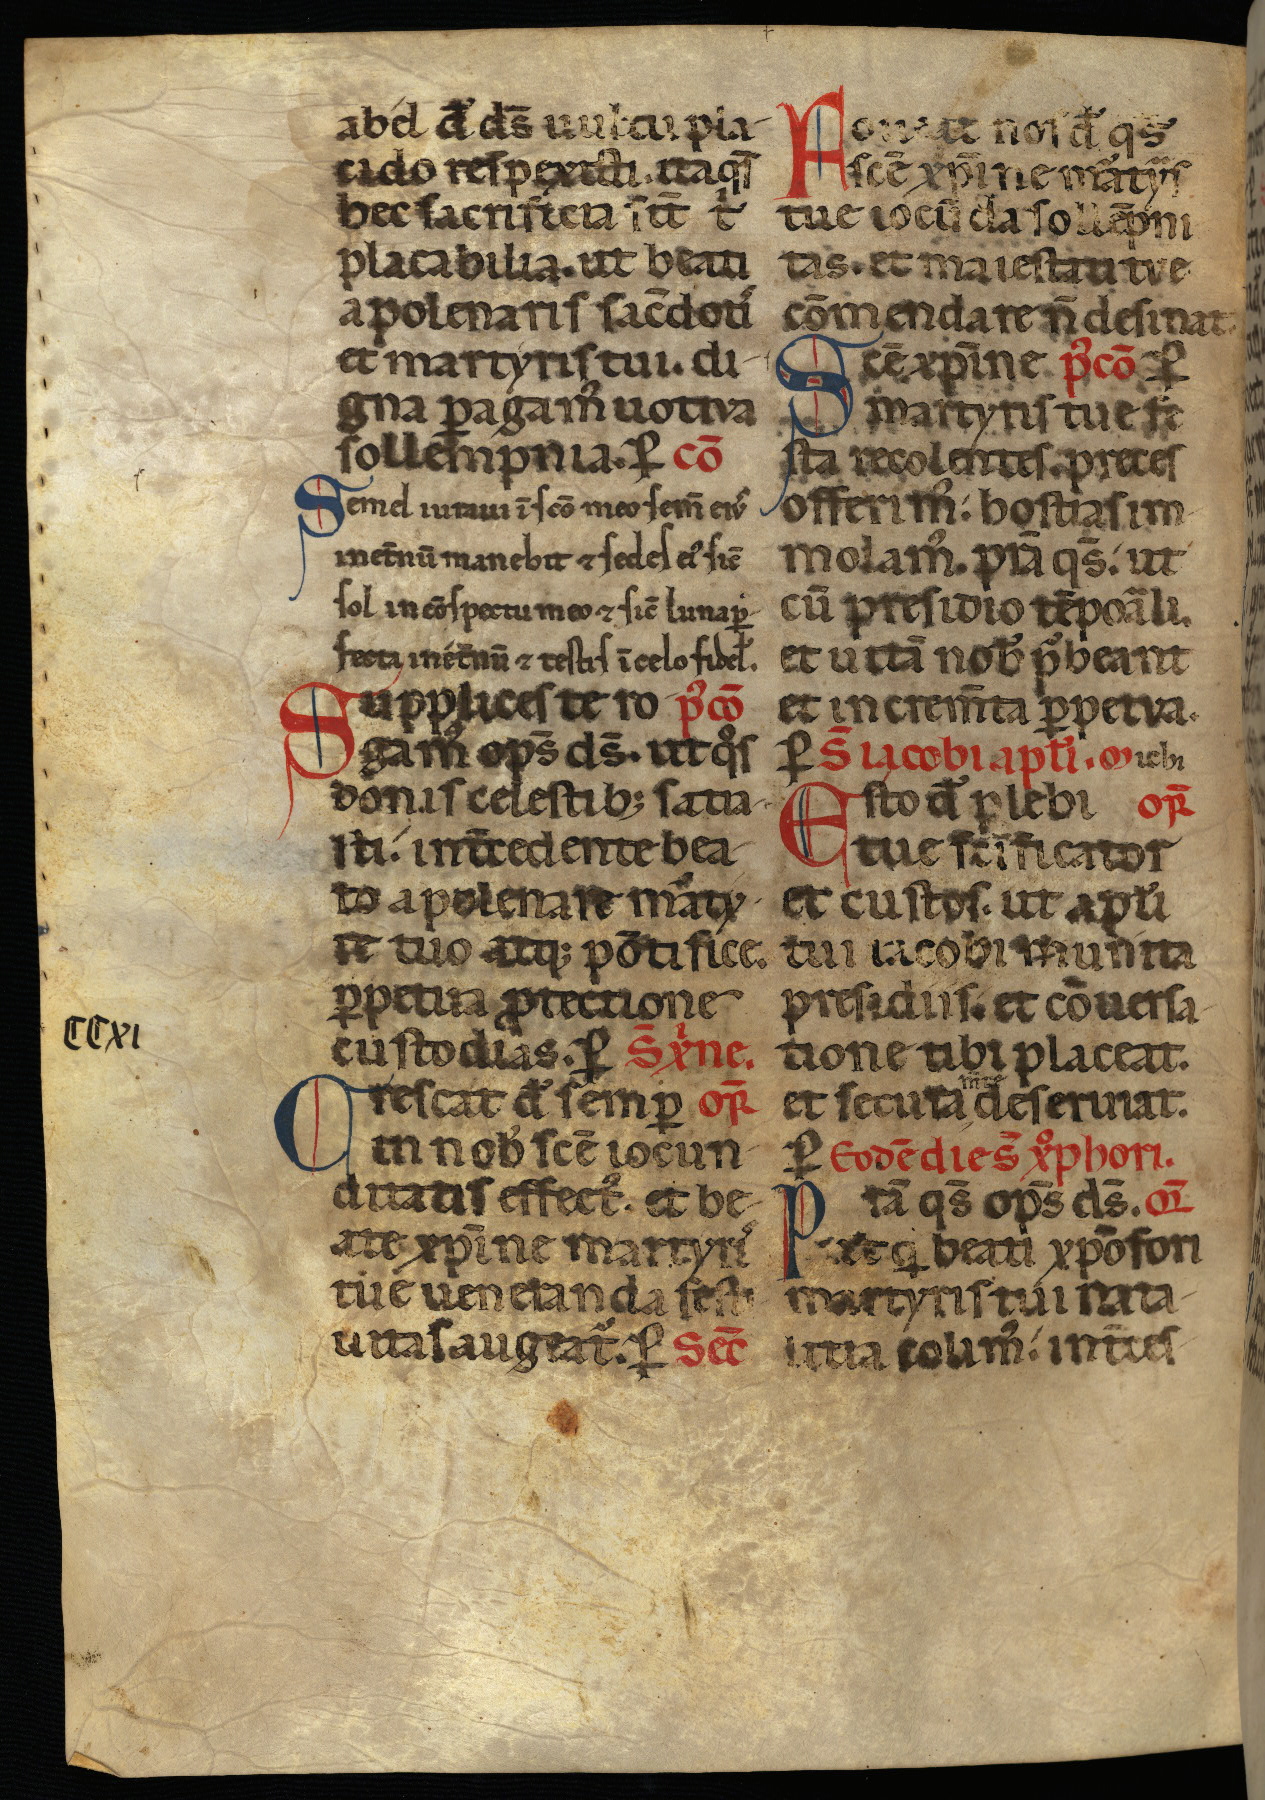 abel d̄ ds̄ uultu pla-
cido respexisti. itaqȝ
hec sacrificia sīt t̄
placabilia. ut beati
apolenaris sac̄doti᷒
et martyris tui. di-
gna ꝑagam᷒ uotiva
sollempnia. ꝑ cō
Semel iuraui ī sc̄o meo sem̄ ei᷒
inet̄nū manebit ⁊ sedes ei᷒ sic̄
sol in cōspectu meo ⁊ sic̄ luna ꝑ-
fecta inet̄nū ⁊ testis ī celo fidel᷒.
Supplices te ro p᷒cō
gam᷒ ops̄ ds̄. ut qͦs
donis celestibꝫ satia-
sti. int̄cedente bea-
to apolenare mar̄ty-
re tuo atqꝫ pōtifice.
ꝑpetua ꝓtectione
custodias. ꝑ S̄ xͥne.
CCXI
Crescat d̄ semꝑ or̄
in nob᷒ sc̄e iocun-
ditatis effect᷒. et be-
ate xp̄ine martyri᷒
tue ueneranda festi
uitas augeat᷒. ꝑ Sec̄
nos d̄ qs̄
sc̄e xp̄ine mar̄tyris
tue iocūda sollēpni
tas. et maiestati tve
cōmendare n̄ desinat.
Sc̄e xp̄ine p᷒cō ꝑ
martyris tue fe
sta recolentes. preces
offerim᷒. hostias im-
molam᷒. pr̄a qs̄. ut
cū presidio tēpoāli.
et uitā nob᷒ p᷒beant
et increm̄ta ꝑpetva.
ꝑ S̄ iacobi apl̄i. Michi
Esto d̄ plebi or̄
tue sc̄ificator
et custos. ut apl̄i
tui iacobi munita
presidiis. et cōuersa-
tione tibi placeat.
et secura m̄te deseruiat.
ꝑ Eodē die s̄ xͦphori.
Pr̄a qs̄ ops̄ ds̄. or̄
ut q beati xpōfori
martyris tui nata-
litia colim᷒. int̄ces